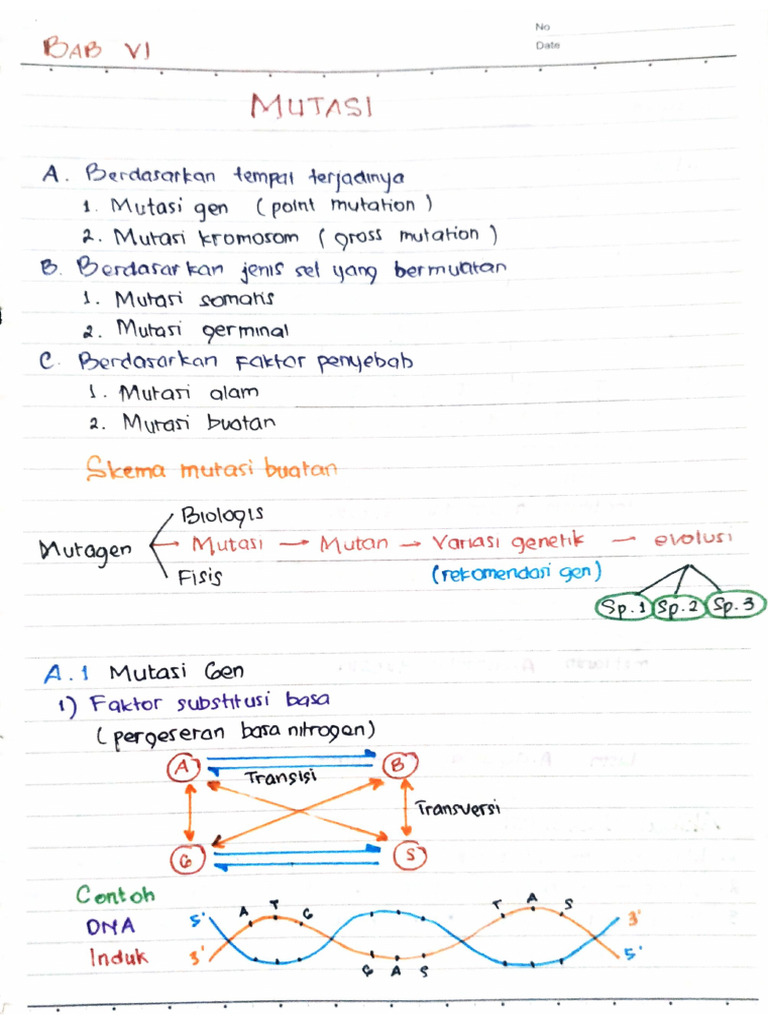 No
BAB VI
Date
MUTASI
A. Berdasarkan tempat terjadinya
1. Mutasi gen (point mutation)
2. Mutasi kromosom (gross mutation)
B. Berdasarkan jenis sel yang bermutan
1. Mutasi somatis
2. Mutasi germinal
C. Berdasarkan faktor penyebab
1. Mutasi alam
2. Mutasi buatan
Skema mutasi buatan
Biologis
Mutagen → Mutasi → Mutan → Variasi genetik → evolusi
Fisis
(rekomendasi gen)
Sp.1 Sp.2 Sp.3
A.1 Mutasi Gen
1) Faktor substitusi basa
(pergeseran basa nitrogen)
A B
Transisi
Transversi
G S
Contoh
DNA
Induk
5' A T G T A S 3'
3' G A S 5'